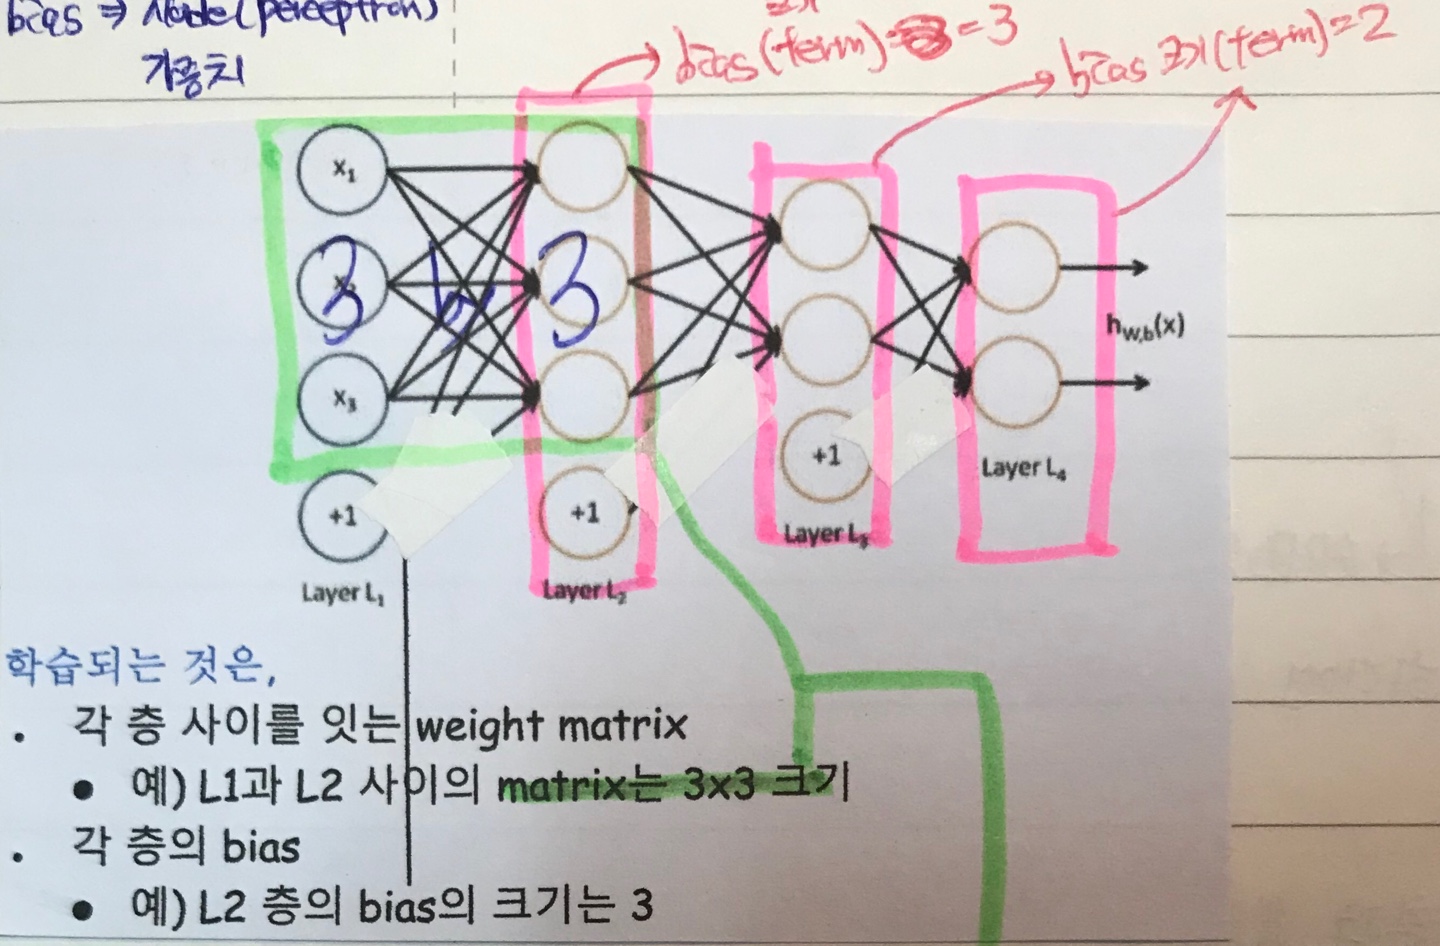 bias ⇒ Node(perceptron)
가중치
bias(term) = 3
bias 크기(term)=2
x₁
3 by 3
x₃
+1
+1
+1
h_W,b(x)
Layer L₁
Layer L₂
Layer L₃
Layer L₄
학습되는 것은,
. 각 층 사이를 잇는 weight matrix
● 예) L1과 L2 사이의 matrix는 3x3 크기
. 각 층의 bias
● 예) L2 층의 bias의 크기는 3